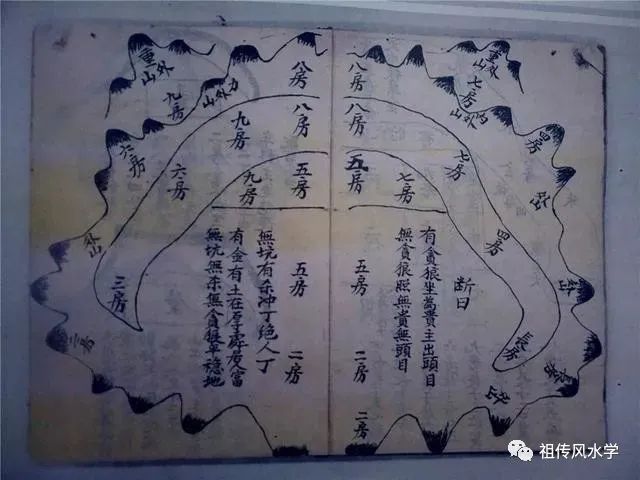 重外山
七房
内外山
四房
七房
四房
長房
八房
八房
五房
七房
五房
二房
二房
断曰
有貪狼坐為貴主出頭目
無貪狼照無貴無頭目
八房
八房
五房
五房
二房
重外山
九房
外山
九房
九房
六房
六房
外山
三房
三房
無坑有杀冲丁绝人丁
有金有土在
人富
無坑無杀無貪狼平穩地
祖传风水学